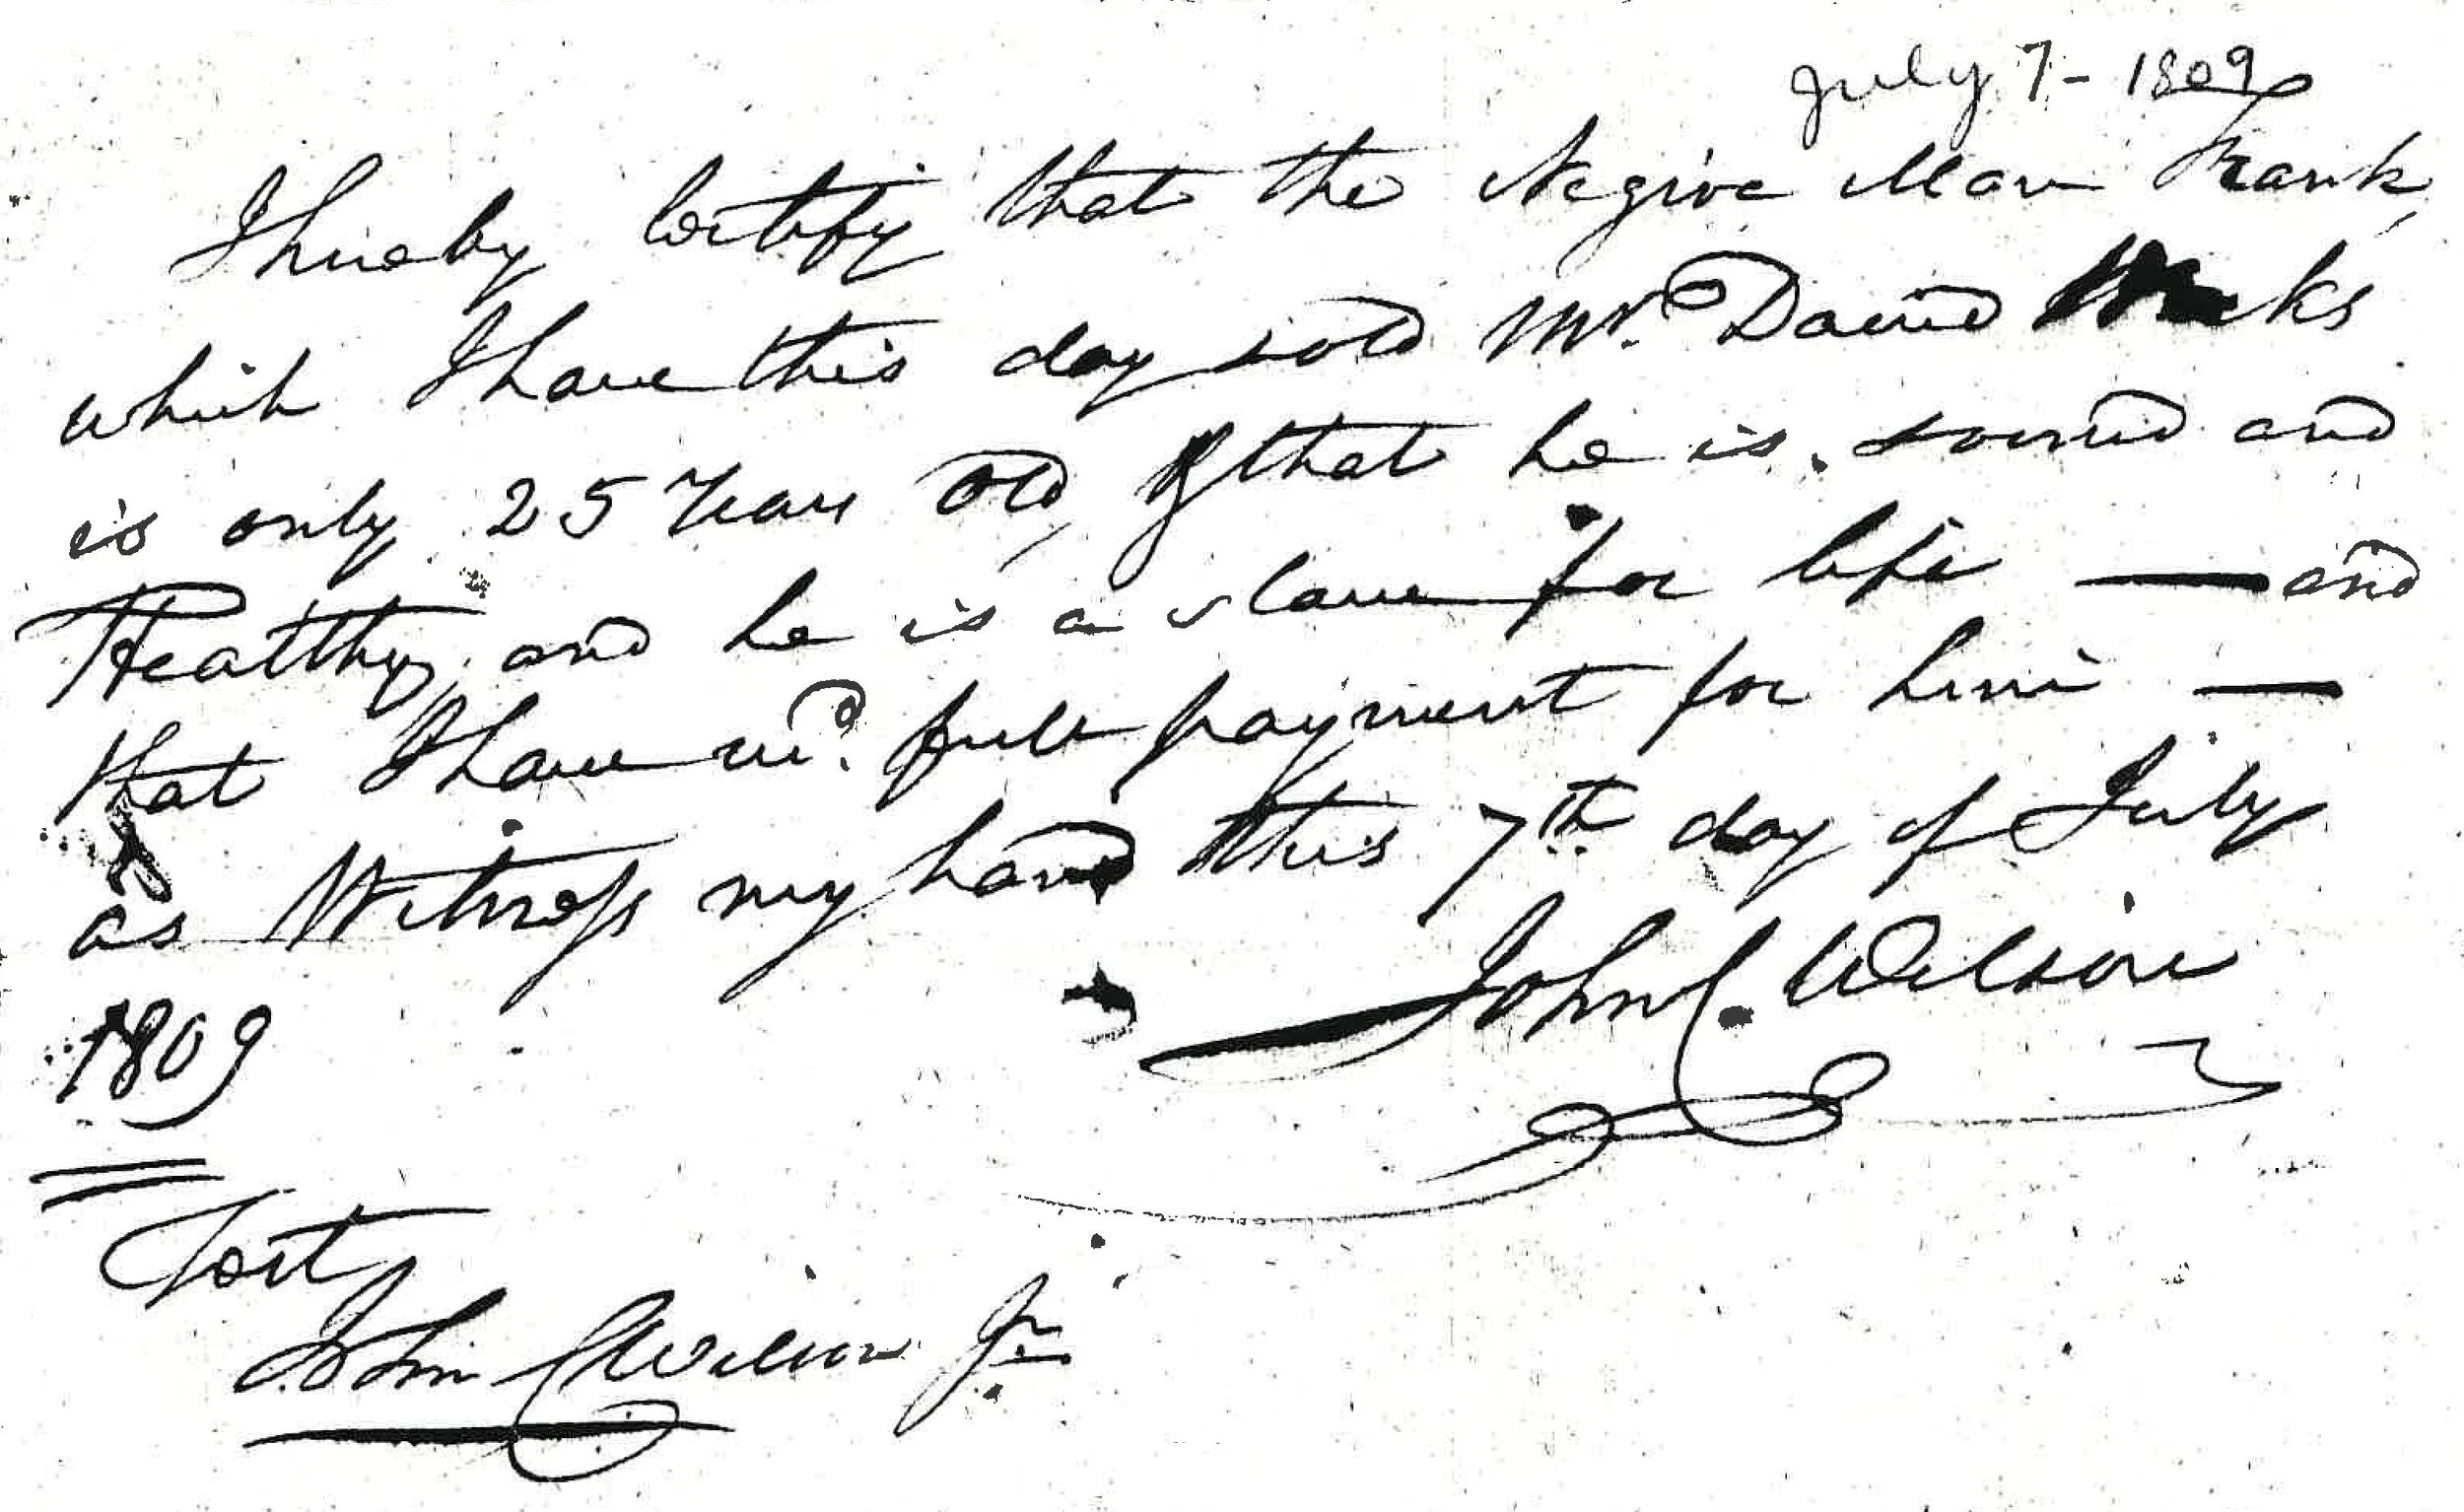 July 7 - 1809
I hereby Certify that the Negroe Man Frank,
which I have this day sold Mr. David Weeks
is only 25 Years Old, & that he is sound and
Healthy, and he is a slave for life — and
that I have recd. full payment for him —
as Witness my hand this 7th day of July
1809
John C. Wilson
Test
John C Wilson Jr.